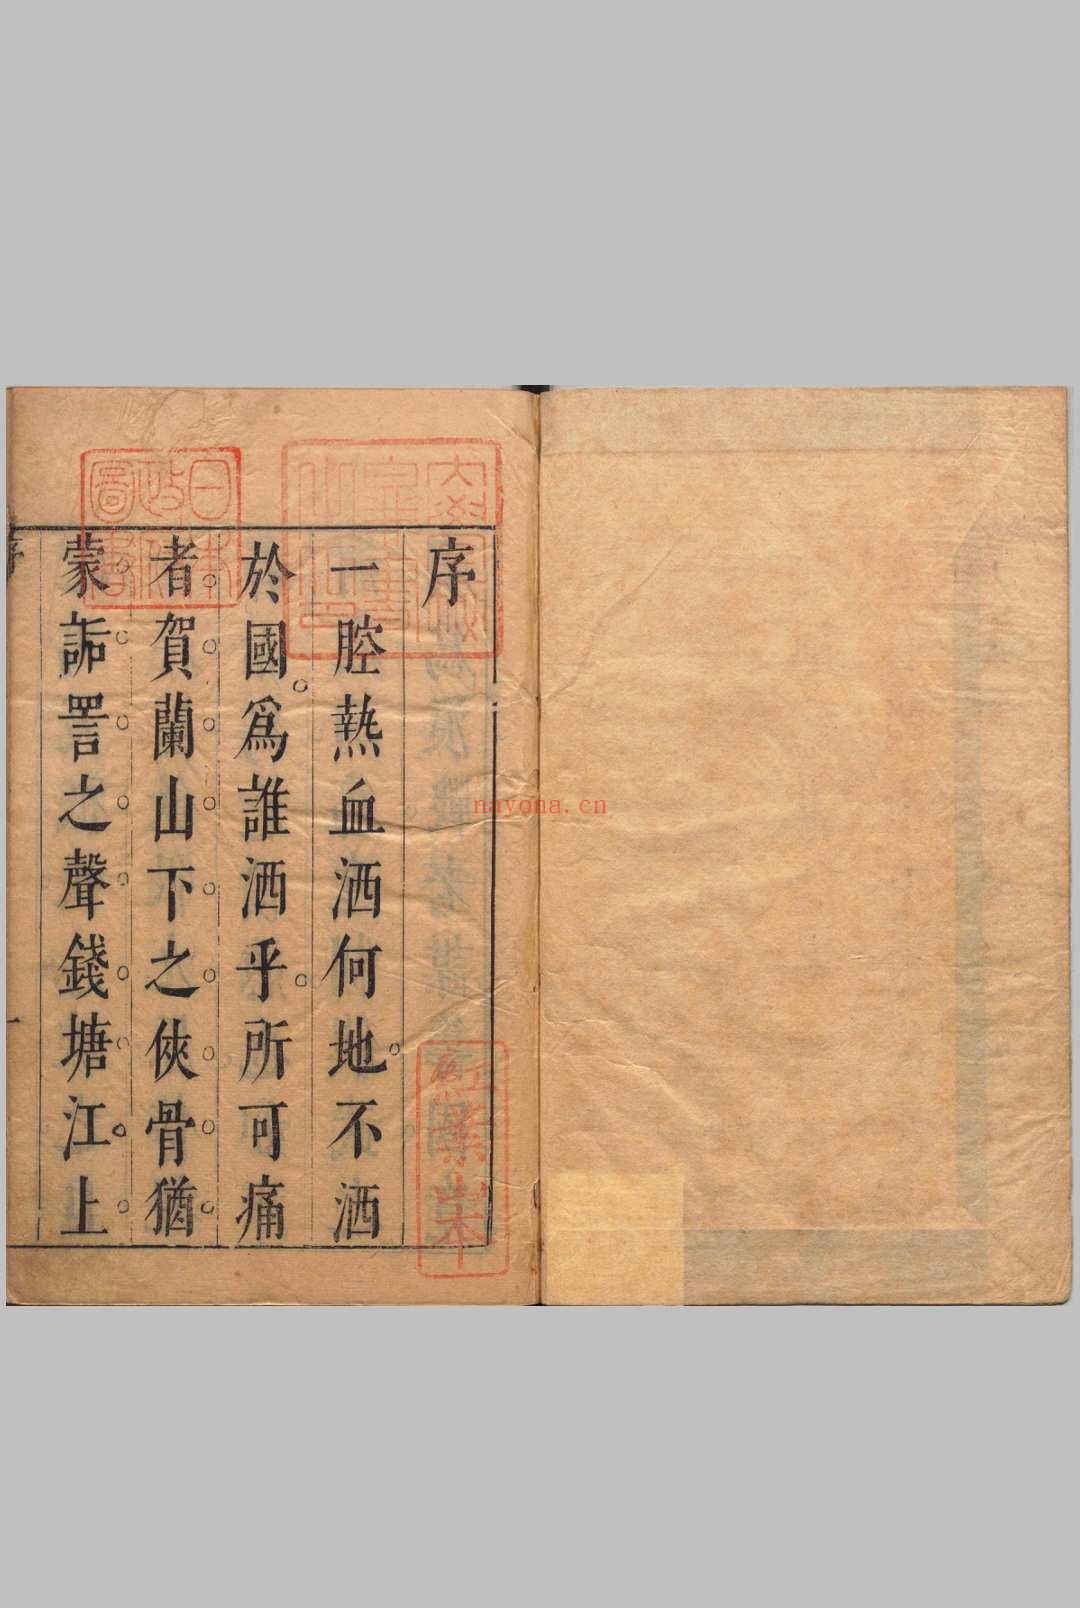 序
一腔熱血洒何地不洒
於國爲誰洒乎所可痛
者賀蘭山下之俠骨猶
蒙詬詈之聲錢塘江上
序
一
日本政府圖書
nayona.cn